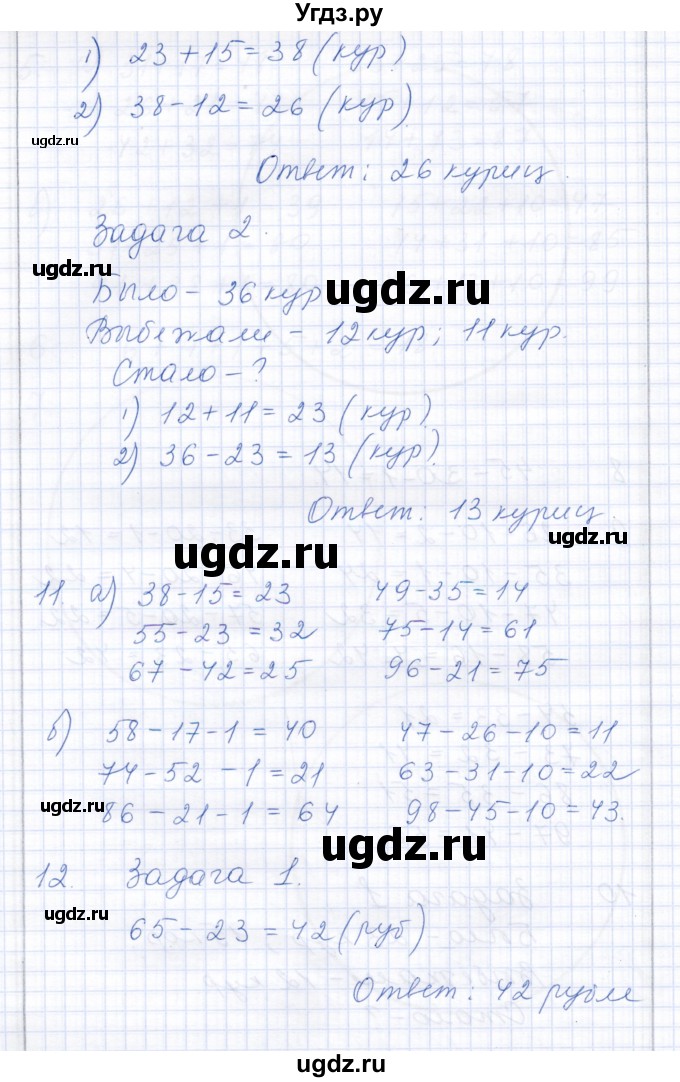 Угдз.ру
1) 23+15=38 (кур)
2) 38-12=26 (кур)
ugdz.ru
Ответ: 26 куриц.
Задача 2.
ugdz.ru
Было - 36 кур
ugdz.ru
Выбежали - 12 кур; 11 кур.
Стало - ?
1) 12+11=23 (кур)
2) 36-23=13 (кур).
ugdz.ru
Ответ: 13 куриц.
ugdz.ru
11. а) 38-15=23 49-35=14
55-23=32 75-14=61
67-42=25 96-21=75
ugdz.ru
б) 58-17-1=40 47-26-10=11
74-52-1=21 63-31-10=22
ugdz.ru
86-21-1=64 98-45-10=43.
ugdz.ru
12. Задача 1.
ugdz.ru
65-23=42 (руб)
Ответ: 42 рубля
ugdz.ru
ugdz.ru